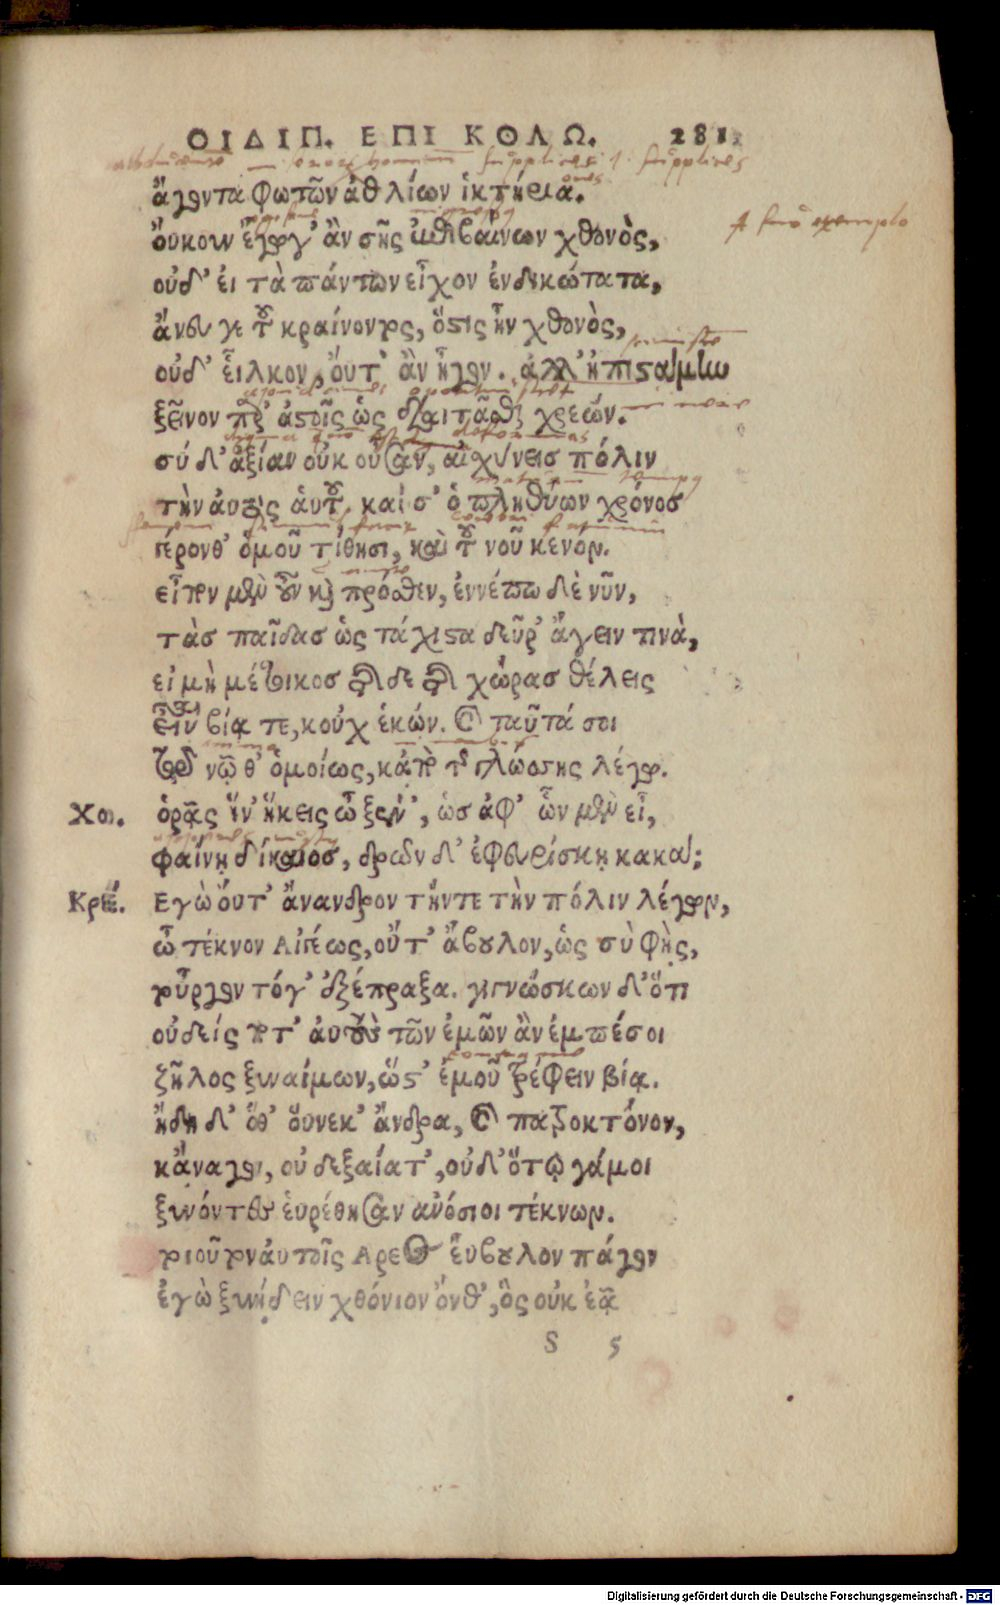 ΟΙΔΙΠ. ΕΠΙ ΚΟΛΩ. 281
supplices supplices
ἄγοντα φωτῶν ἀθλίων ἱκτήρια.
ὄυκουν ἔγωγ' ἂν σῆς ἐπιβαίνων χθονὸς,
suo exemplo
οὐδ' ἐι τὰ πάντων εἶχον ἐνδικώτατα,
ἄνευ γε τοῦ κραίνοντος, ὅστις ἦν χθονὸς,
οὐδ' εἷλκον, ὄυτ' ἂν ἦγον. ἀλλ' ἠπιστάμην
ξεῖνον παρ' ἀστοῖς ὡς διαιτᾶσθαι χρεών.
σύ δ' ἀξίαν οὐκ οὖσαν, αἰσχύνεισ πόλιν
τὴν ἀυτὸς ἁυτοῦ, καί σ' ὁ πληθύων χρόνοσ
γέρονθ' ὁμοῦ τίθησι, καὶ τοῦ νοῦ κενόν.
εἶπον μὲν οὖν καὶ πρόσθεν, ἐννέπω δὲ νῦν,
τὰσ παῖδασ ὡς τάχιστα δεῦρ' ἄγειν τινὰ,
εἰ μὴ μέτοικοσ τῆσδε τῆς χώρασ θέλεις
εἶναι βίᾳ τε, κοὐχ ἑκών. καὶ ταῦτά σοι
τῷ νῷ θ' ὁμοίως, κἀπὸ τῆς γλώσσης λέγω.
Χο. ὁρᾷς ἵν' ἥκεις ὦ ξεῖν', ὡσ ἀφ' ὧν μὲν εἶ,
φαίνῃ δίκαιοσ, δρῶν δ' ἐφευρίσκῃ κακά;
Κρέ. Εγὼ ὄυτ' ἄνανδρον τήντε τὴν πόλιν λέγων,
ὦ τέκνον Αἰγέως, οὔτ' ἄβουλον, ὡς σὺ φῂς,
τοὖργον τόγ' ἐξέπραξα. γιγνώσκων δ' ὅτι
οὐδείς ποτ' ἀυτοὺς τῶν ἐμῶν ἂν ἐμπέσοι
ζῆλος ξυναίμων, ὥστ' ἐμοῦ τρέφειν βίᾳ.
ᾔδη δ' ὅθ' ὅυνεκ' ἄνδρα, καὶ πατροκτόνον,
κἄναγνον, οὐ δεξαίατ', οὐδ' ὅτῳ γάμοι
ξυνόντες ἑυρέθησαν ἀνόσιοι τέκνων.
τοιοῦτον ἀυτοῖς Αρεος ἔυβουλον πάγον
ἐγὼ ξυνῄδειν χθόνιον ὄνθ', ὃς οὐκ ἐᾷ
S 5
Digitalisierung gefördert durch die Deutsche Forschungsgemeinschaft - DFG